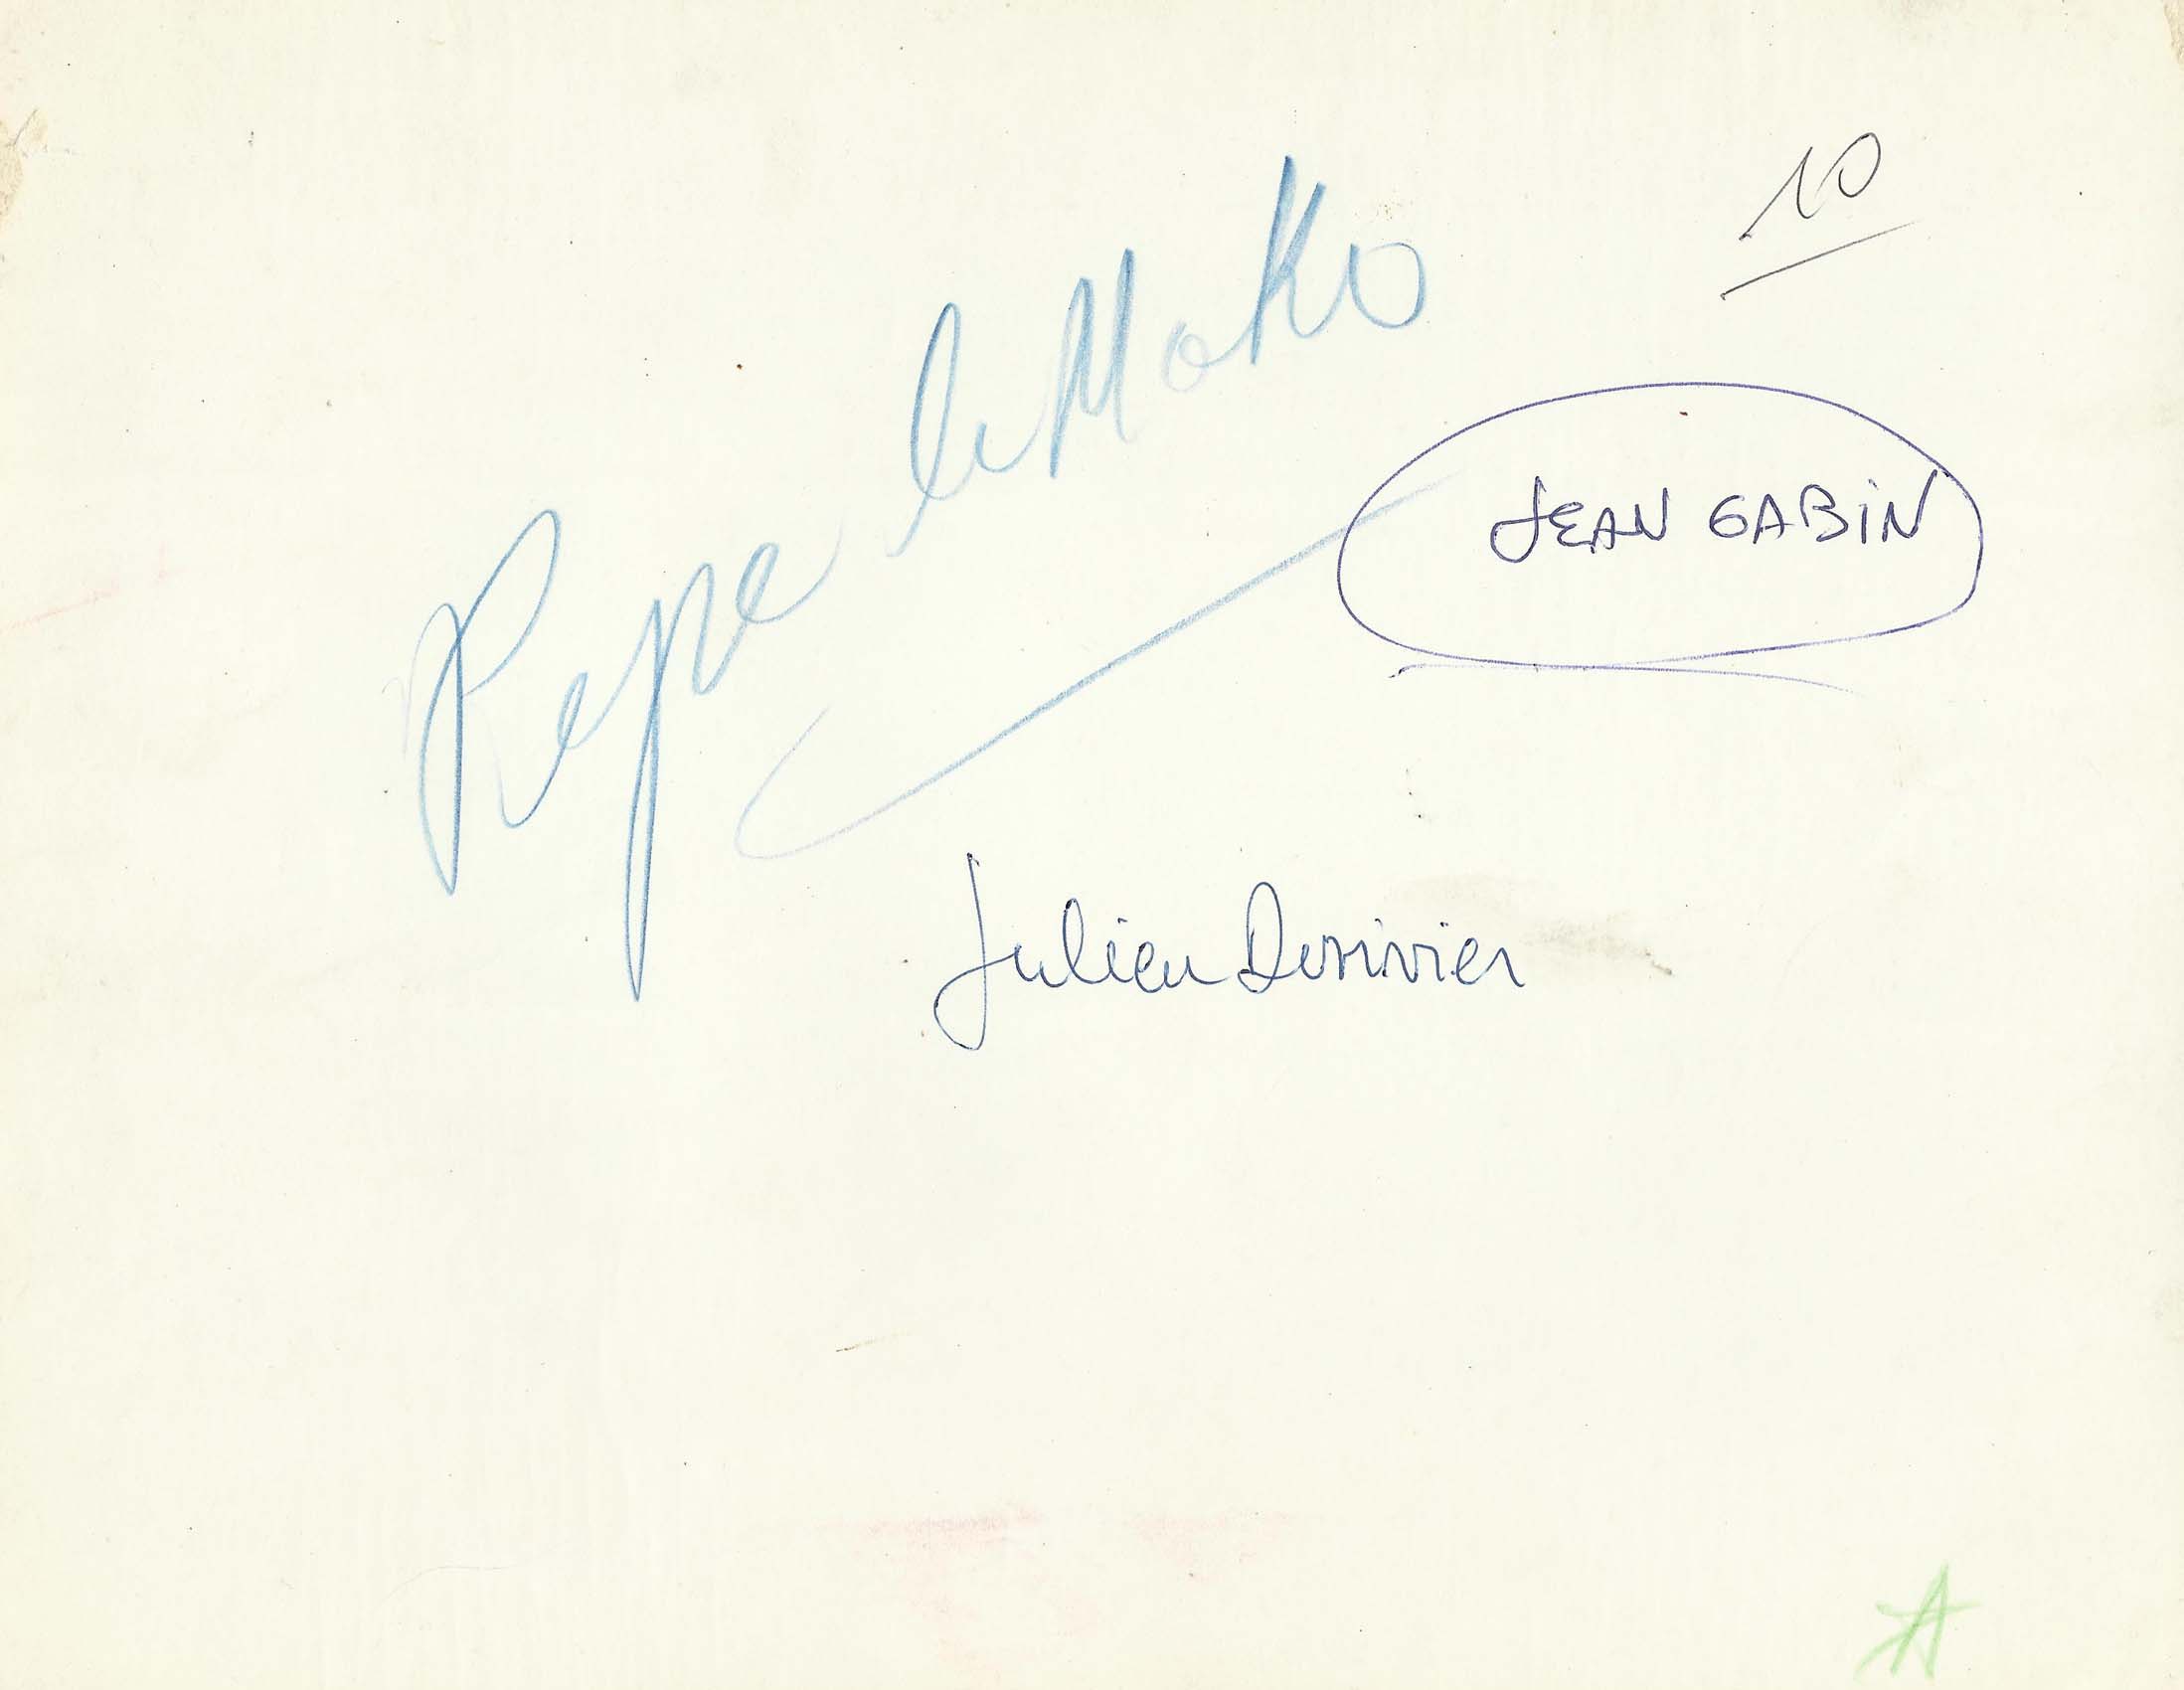 10
Pepe le Moko
JEAN GABIN
Julien Duvivier
A